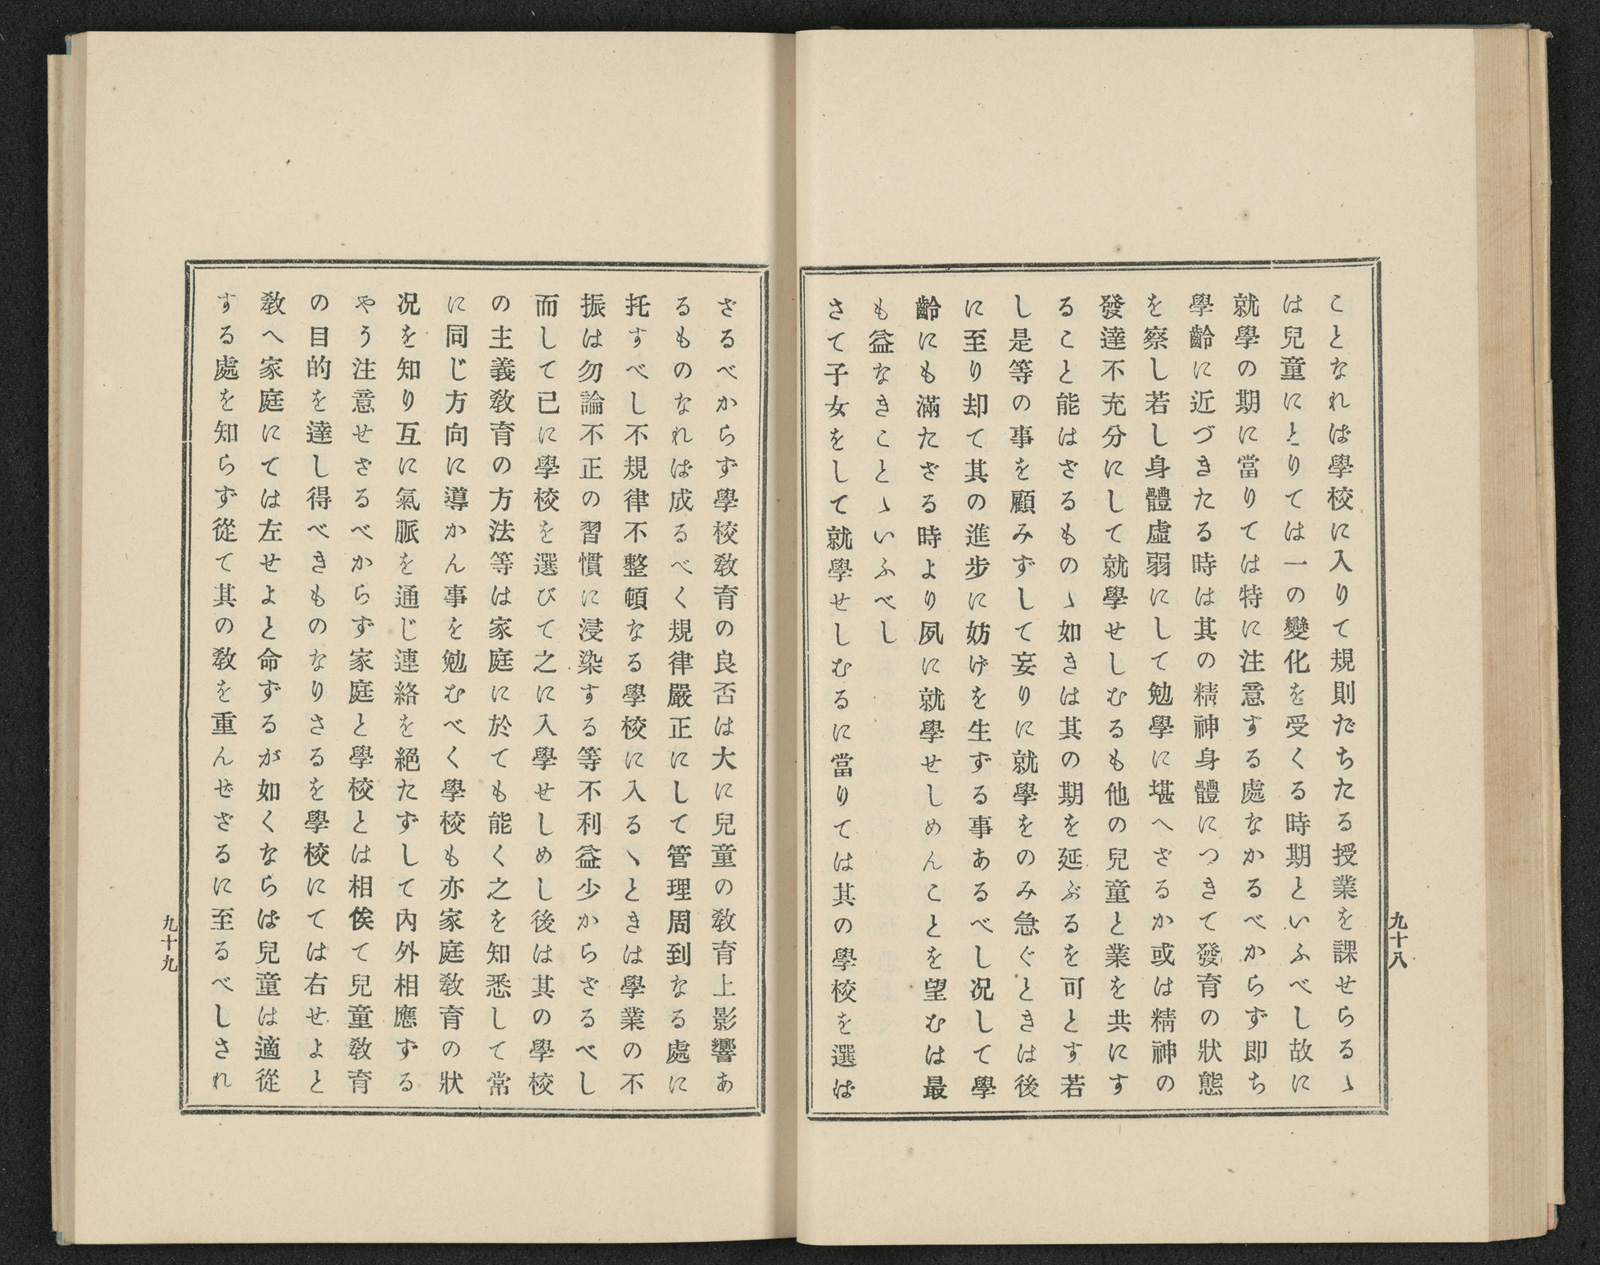 九十八
ことなれば學校に入りて規則だちたる授業を課せらるゝ
は兒童にとりては一の變化を受くる時期といふべし故に
就學の期に當りては特に注意する處なかるべからず即ち
學齡に近づきたる時は其の精神身體につきて發育の狀態
を察し若し身體虛弱にして勉學に堪へざるか或は精神の
發達不充分にして就學せしむるも他の兒童と業を共にす
ること能はざるものゝ如きは其の期を延ぶるを可とす若
し是等の事を顧みずして妄りに就學をのみ急ぐときは後
に至り却て其の進步に妨げを生ずる事あるべし況して學
齡にも滿たざる時より夙に就學せしめんことを望むは最
も益なきことゝいふべし
さて子女をして就學せしむるに當りては其の學校を選ば
ざるべからず學校敎育の良否は大に兒童の敎育上影響あ
るものなれば成るべく規律嚴正にして管理周到なる處に
托すべし不規律不整頓なる學校に入るヽときは學業の不
振は勿論不正の習慣に浸染する等不利益少からざるべし
而して已に學校を選びて之に入學せしめし後は其の學校
の主義敎育の方法等は家庭に於ても能く之を知悉して常
に同じ方向に導かん事を勉むべく學校も亦家庭敎育の狀
況を知り互に氣脈を通じ連絡を絶たずして內外相應ずる
やう注意せざるべからず家庭と學校とは相俟て兒童敎育
の目的を達し得べきものなりさるを學校にては右せよと
敎へ家庭にては左せよと命ずるが如くならば兒童は適從
する處を知らず從て其の敎を重んぜざるに至るべしされ
九十九